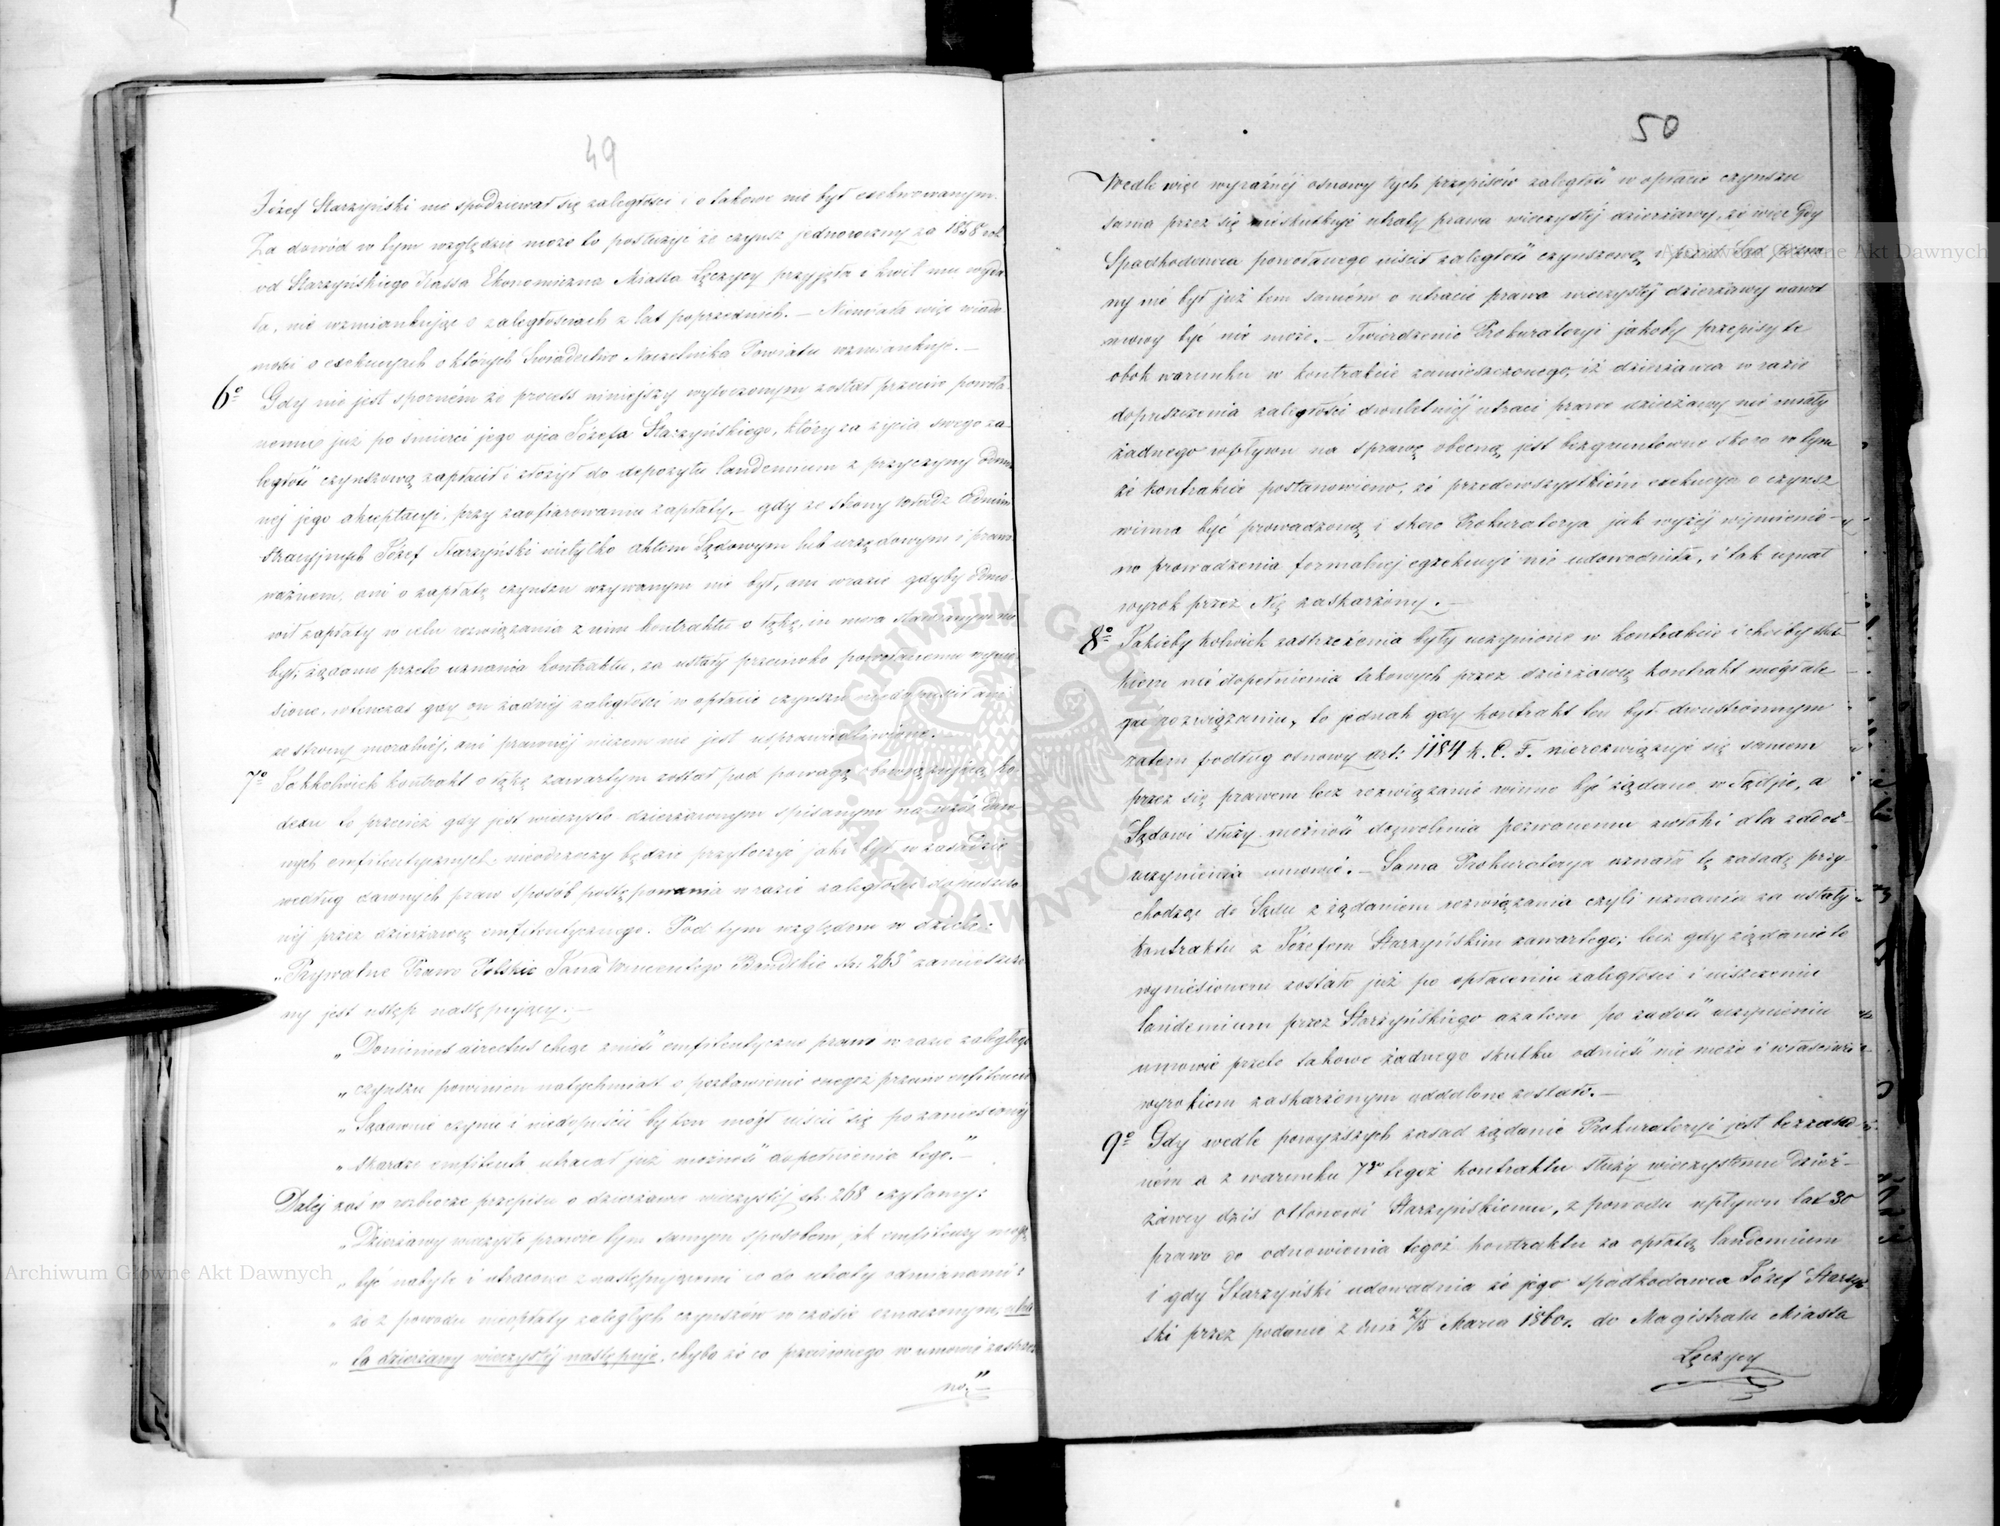 49
Józef Starzyński nie spodziewał się zaległości i o takowe nie był exekwowanym.
Za dowód w tym względzie może to posłużyć że czynsz jednoroczny za 1858 rok
od Starzyńskiego Kassa Ekonomiczna Miasta Łęczycy przyjęła i kwit mu wyda-
ła, nie wzmiankując o zaległościach z lat poprzednich. — Niemiała więc wiado-
mości o exekucyach o których Świadectwo Naczelnika Powiatu wzmiankuje. —
6o Gdy nie jest spornem że process niniejszy wytoczonym został przeciw powoła-
nemu już po śmierci jego ojca Józefa Starzyńskiego, który za życia swego za-
ległość czynszową zapłacił i złożył do depozytu laudemium z przyczyny odmó-
nej jego akceptacyi, przy zaofiarowaniu zapłaty, — gdy ze strony władz Admini-
stracyjnych Józef Starzyński nietylko aktem Sądowym lub urzędowym i praw-
nażnem, ani o zapłatę czynszu wzywanym nie był, ani w razie gdyby odmó-
wił zapłaty w celu rozwiązania z nim kontraktu o łąkę, in mora stawianym nie
był; żądanie przeto uznania kontraktu, za ustały przeciwko powołanemu wynie-
sione, wtenczas gdy on żadnej zaległości w opłacie czynszu niedopuścił ani
ze strony moralnéj, ani prawnéj niczem nie jest usprawiedliwione. —
7o Jakkolwiek kontrakt o łąkę zawartym został pod powagą obowiązującą Ko-
dexu to przecież gdy jest wieczysto-dzierżawnym spisanym na wzór daw-
nych emfiteutycznych, nieodrzeczy będzie przytoczyć jaki był w zasadzie
według dawnych praw sposób postępowania w razie zaległości dopuszczo-
néj przez dzierżawcę emfiteutycznego. Pod tym względem w dziele:
„Prywatne Prawo Polskie Jana Wincentego Bandtkie str: 263 zamieszczo-
ny jest ustęp następujący: —
„Dominus directus chcąc znieść emfiteutyczne prawo w razie zaległego
„czynszu powinien natychmiast o pozbawienie onegoż prawa emfiteutę
„Sądownie czynić i niedopuścić by ten mógł uiścić się po zaniesionéj
„skardze emfiteuta utracał już możność dopełnienia tego." —
Daléj zaś w rozbiorze przepisu o dzierżawie wieczystéj str: 268 czytamy:
„Dzierżawy wieczyste prawie tym samym sposobem jak emfiteuzy mogą
„być nabyte i utracone z następującemi co do utraty odmianami:
„że z powodu nieopłaty zaległych czynszów w czasie oznaczonym, utra-
„ta dzierżawy wieczystéj następuje, chyba że co przeciwnego w umowie zastrzeżo-
no" —
50
Wedle więc wyraźnéj osnowy tych przepisów zaległość w opłacie czynszu
sama przez się nieskutkuje utraty prawa wieczystéj dzierżawy, że więc gdy
Spadkodawca powołanego uiścił zaległość czynszową i przed Sąd pozwa-
ny nie był już tem samém o utracie prawa wieczystéj dzierżawy nawet
mowy być nie może. — Twierdzenie Prokuratoryi jakoby przepisy te
obok warunku w kontrakcie zamieszczonego, iż dzierżawca w razie
dopuszczenia zaległości dwuletniéj utraci prawo dzierżawy nie miały
żadnego wpływu na sprawę obecną, jest bezgruntówne skoro w tym-
że kontrakcie postanowiono, że przedewszystkiém exekucya o czynsz
winna być prowadzoną i skoro Prokuratorya jak wyżéj wymienio-
no prowadzenia formalnej egzekucyi nie udowodniła, i tak uznał
wyrok przez Nię zaskarżony. —
8o Jakieby kolwiek zastrzeżenia były uczynione w kontrakcie i choćby skut-
kiem nie dopełnienia takowych przez dzierżawcę kontrakt mógł ule-
gać rozwiązaniu, to jednak gdy kontrakt ten był dwustronnym
zatem podług osnowy art: 1184 K. C. F. nierozwiązuje się samem
przez się prawem lecz rozwiązanie winno być żądane w Sądzie, a
Sądowi służy możność dozwolenia pozwanemu zwłoki dla zadość-
uczynienia umowie. — Sama Prokuratorya uznała tę zasadę przy-
chodząc do Sądu z żądaniem rozwiązania czyli uznania za ustały
kontraktu z Józefem Starzyńskim zawartego; lecz gdy żądanie to
wyniesionem zostało już po opłaceniu zaległości i uiszczeniu
laudemium przez Starzyńskiego a zatem po zadość uczynieniu
umowie przeto takowe żadnego skutku odnieść nie może i właściwie
wyrokiem zaskarżonym oddalone zostało. —
9o Gdy wedle powyższych zasad żądanie Prokuratoryi jest bezzasad-
ném a z warunku 7go tegoż kontraktu służy wieczystemu Dzier-
żawcy dziś Ottonowi Starzyńskiemu, z powodu upływu lat 30
prawo do odnowienia tegoż kontraktu za opłatą laudemium
i gdy Starzyński udowadnia że jego spadkodawca Józef Starzyń-
ski przez podanie z dnia 3/15 Marca 1860 r. do Magistratu Miasta
Łęczycy
ARCHIWUM GŁÓWNE AKT DAWNYCH
Archiwum Główne Akt Dawnych
Archiwum Główne Akt Dawnych